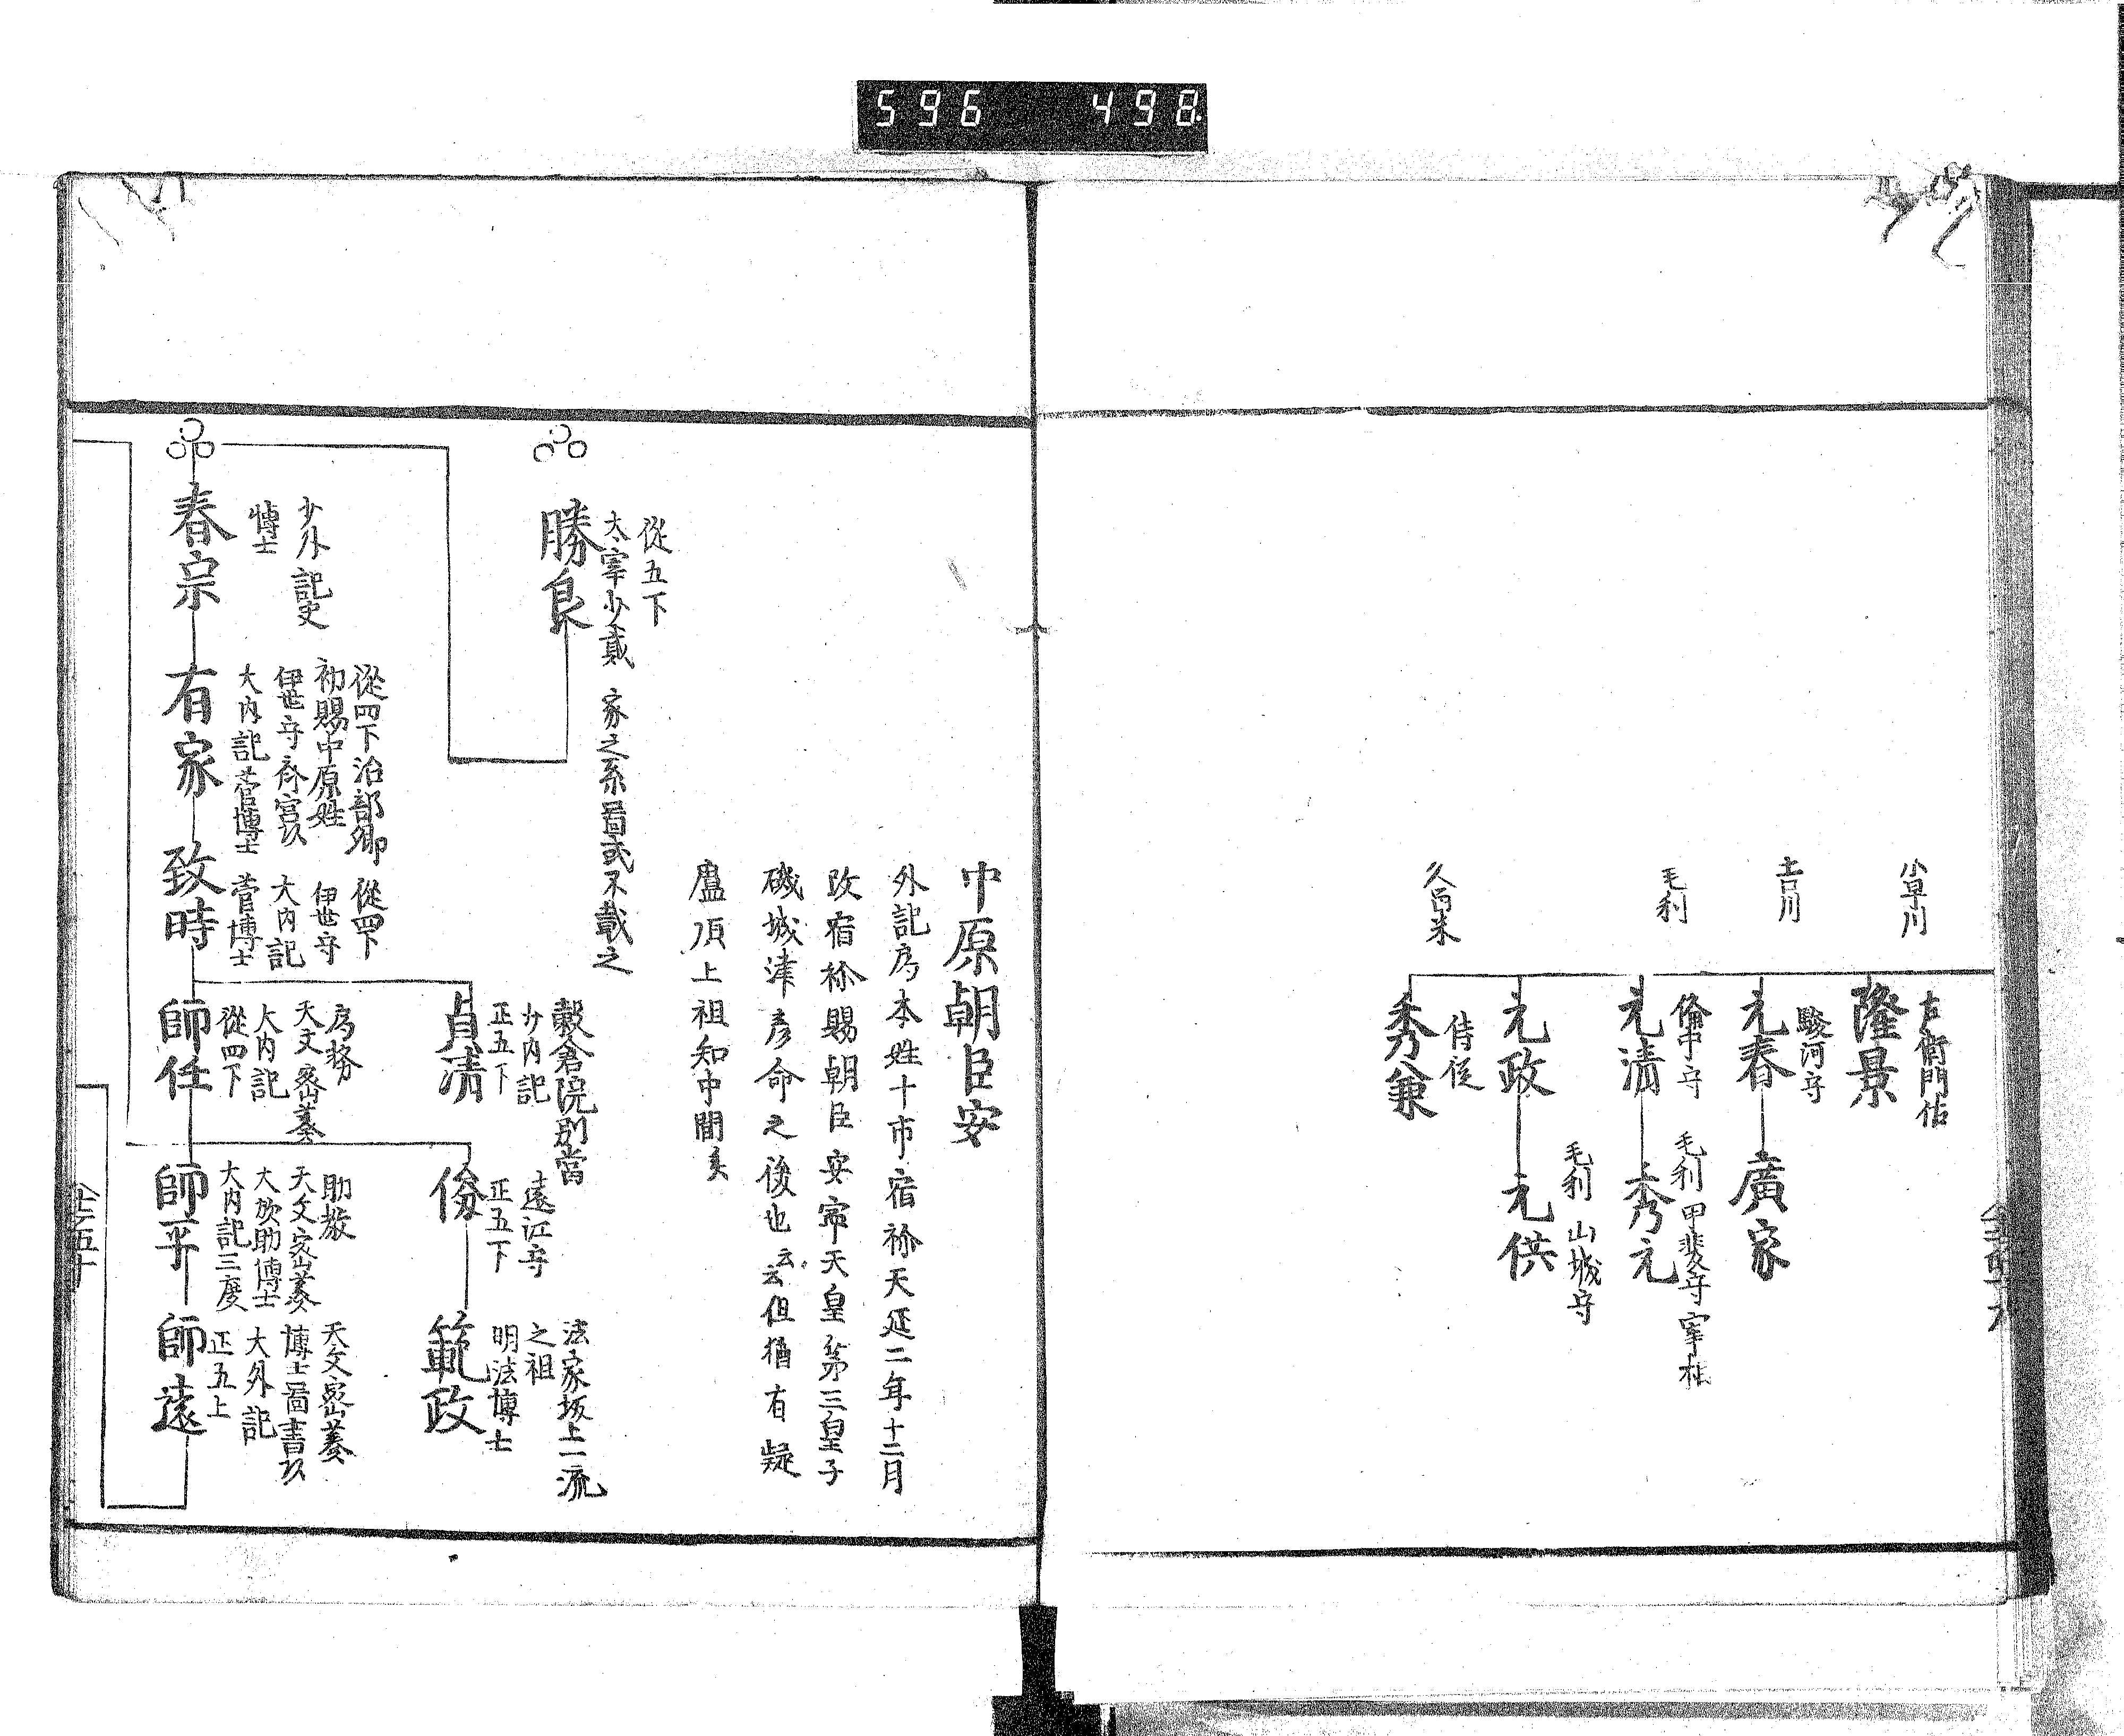 596 498
小早川
左衛門佐
隆景
吉川
駿河守
元春
廣家
毛利
備中守
元清
毛利 甲斐守 宰相
秀元
元政
毛利 山城守
元供
久留米
侍従
秀兼
中原朝臣安
外記局本姓十市宿祢天延二年十二月
改宿祢賜朝臣安寧天皇第三皇子
磯城津彦命之後也云云但猶有疑
盧頂上祖知中間矣
從五下
太宰少貳 家之系啚或不載之
勝良
穀倉院別當
少内記
正五下
貞清
遠江守
正五下
俗
法家坂上一流
之祖
明法博士
範政
少外記史
博士
春宗
從四下治部卿
初賜中原姓
伊世守斎宮
大内記 博士
有家
從四下
伊世守
大内記
博士
致時
局務
天文密奏
大内記
從四下
師任
助教
天文密奏
大炊助博士
大内記三度
師平
天文密奏
博士啚書
大外記
正五上
師遠